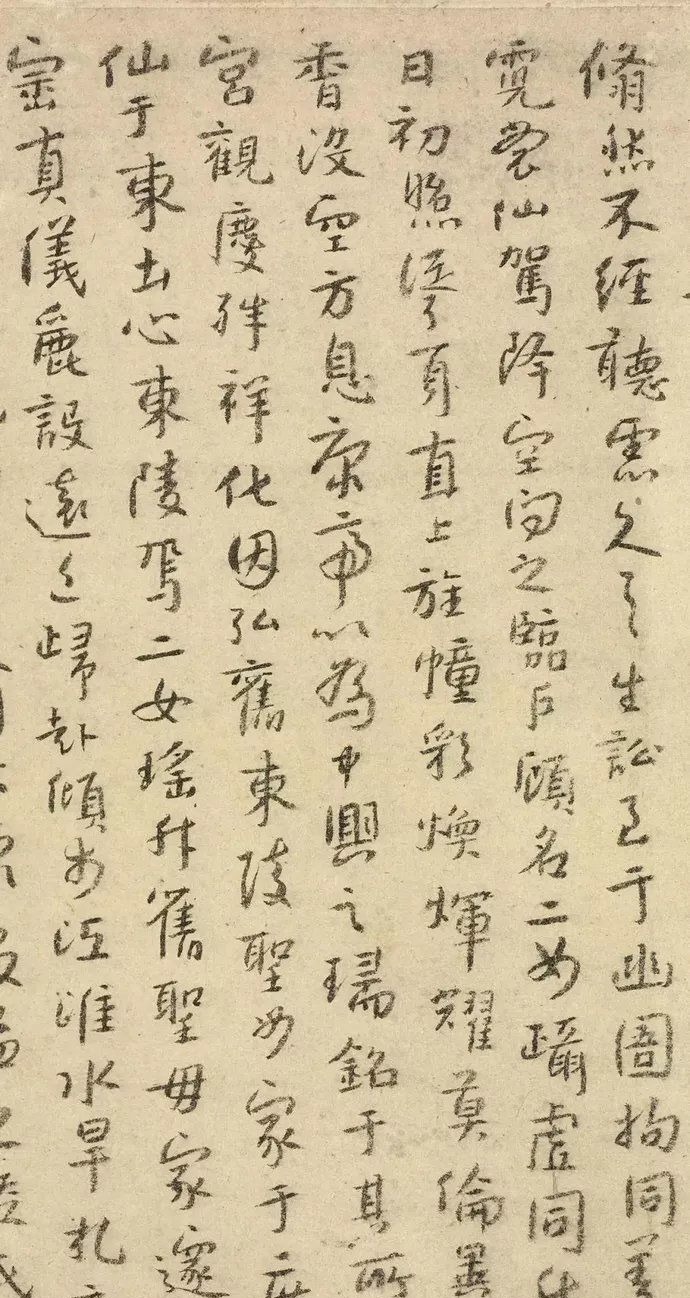 翛然不經聽慮久之生訟至于幽圄拘同羑
霓裳仙駕降空向之臨戶顧名二女躡虛同
日初照聳身直上旌幢彩煥輝耀莫倫異
香沒空方息康帝以為中興之瑞銘于其所
宮觀慶殊祥化因弘舊東陵聖女家于廣
仙于東土心東陵焉二女瑤升舊聖毋家邃
崇真儀麗設遠近歸赴傾匝江淮水旱札